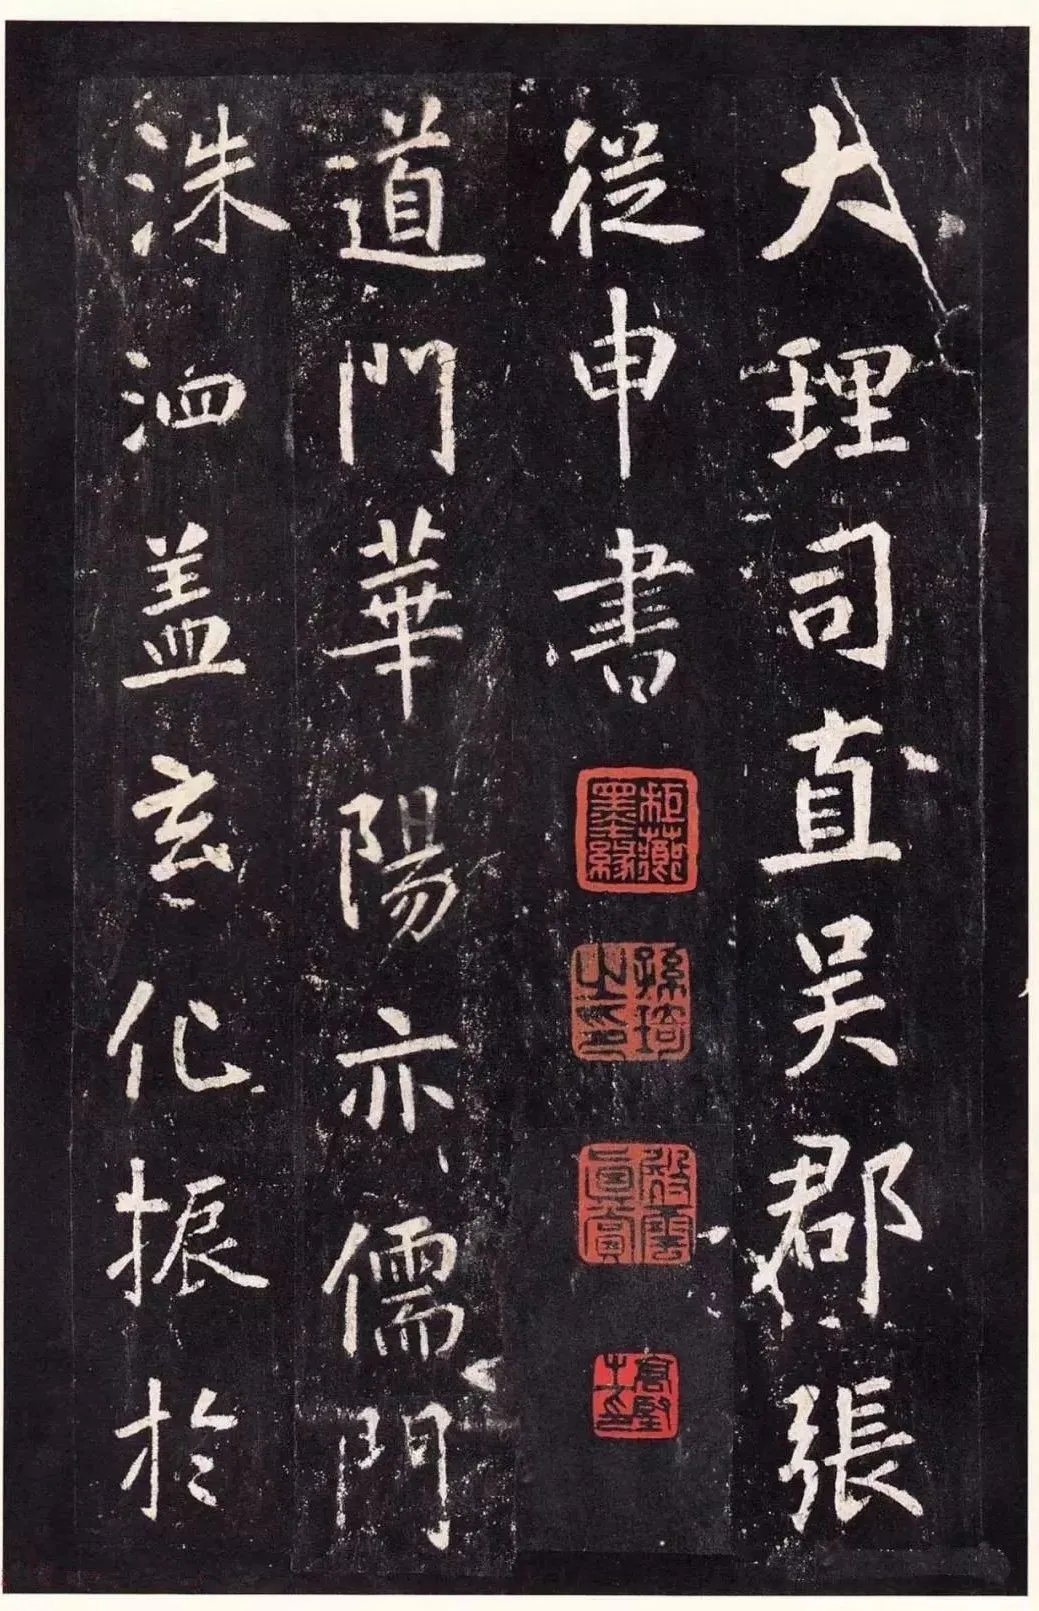 大理司直吳郡張
從申書
道門華陽亦儒門
洙泗盖玄化振於